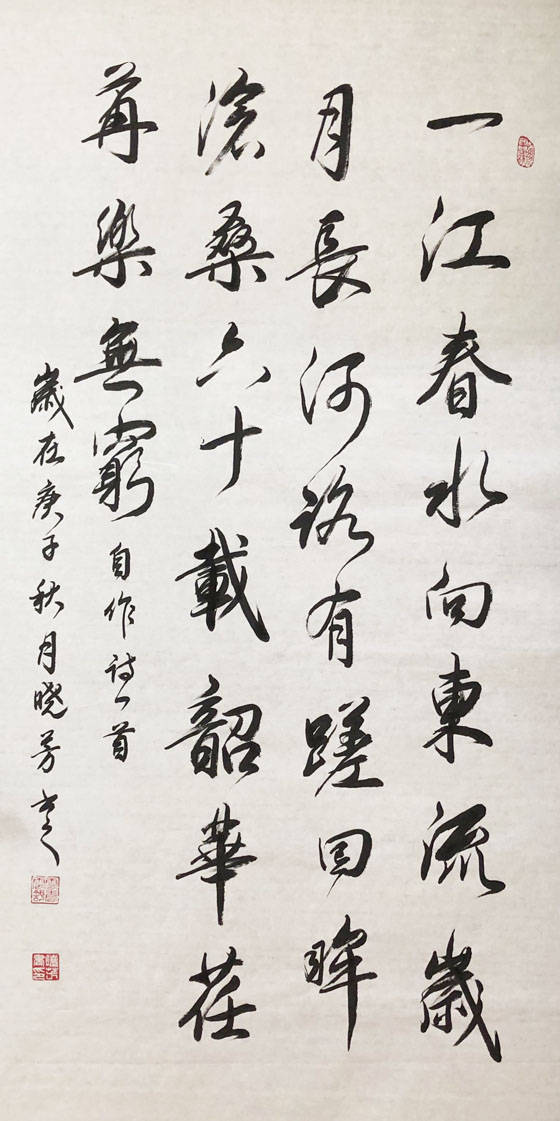 一江春水向東流歲
月長河路有蹉回眸
滄桑六十載韶華荏
苒樂無窮自作詩一首
歲在庚子秋月曉芳書